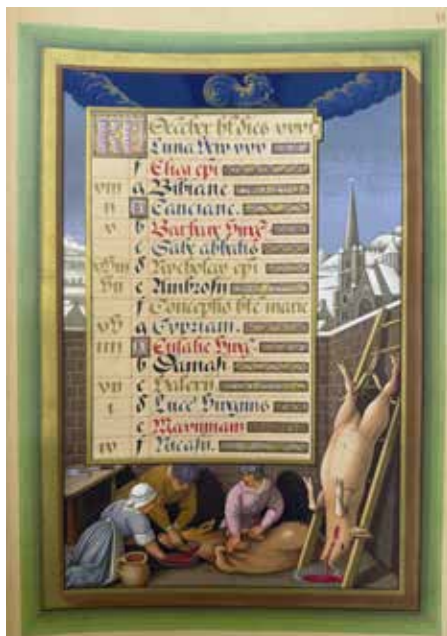 December ht dies xxxi
Luna vero xxx
f Eligi epi
g Bibiane
ii A
b Barbare virg.
c Sabe abbatis
xviii d Nicholay epi
vii e Ambrosii
f Conceptio bte marie
g
iiii A Eulalie virg.
b Damasi
c Valerii
i d Lucie virginis
e
f Nicasii